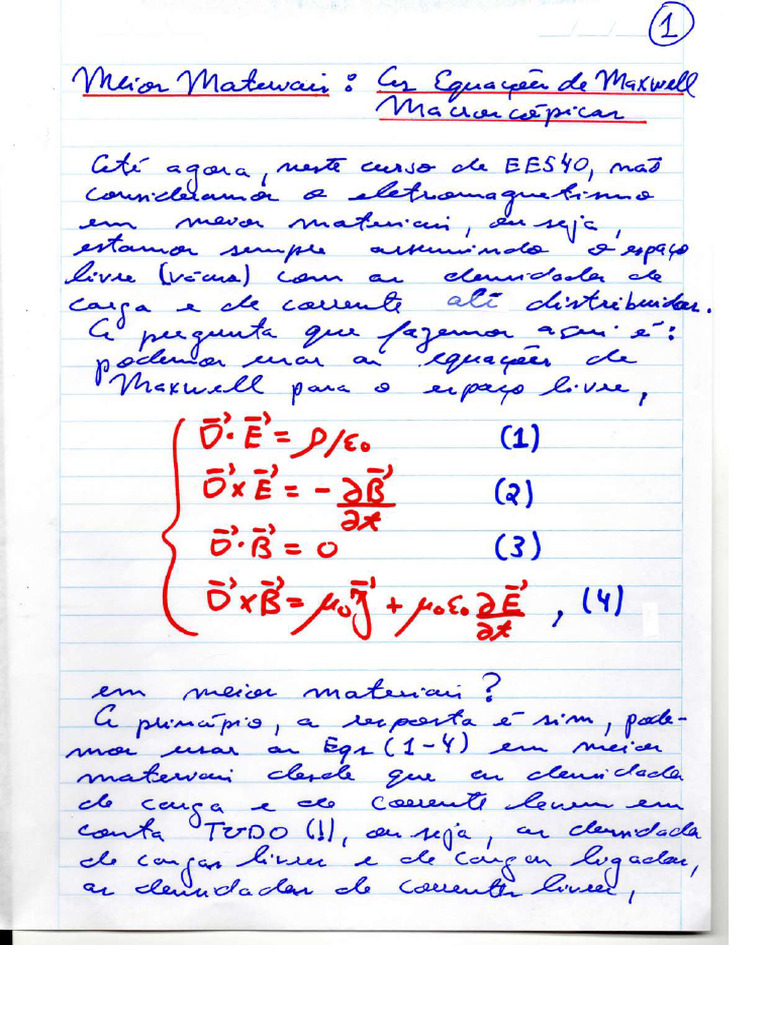 1
Meios Materiais: As Equações de Maxwell
Macroscópicas
Até agora, neste curso de EES40, não
consideramos o eletromagnetismo
em meios materiais, ou seja,
estamos sempre assumindo o espaço
livre (vácuo) com as densidades de
carga e de corrente ali distribuidas.
A pergunta que fazemos aqui é:
podemos usar as equações de
Maxwell para o espaço livre,
∇·E = ρ/ε₀ (1)
∇×E = -∂B/∂t (2)
∇·B = 0 (3)
∇×B = μ₀J + μ₀ε₀ ∂E/∂t , (4)
em meios materiais?
A princípio, a resposta é sim, pode-
mos usar as Eqs (1-4) em meios
materiais desde que as densidades
de carga e de corrente levem em
conta TUDO (!), ou seja, as densidades
de cargas livres e de cargas ligadas,
as densidades de correntes livres,